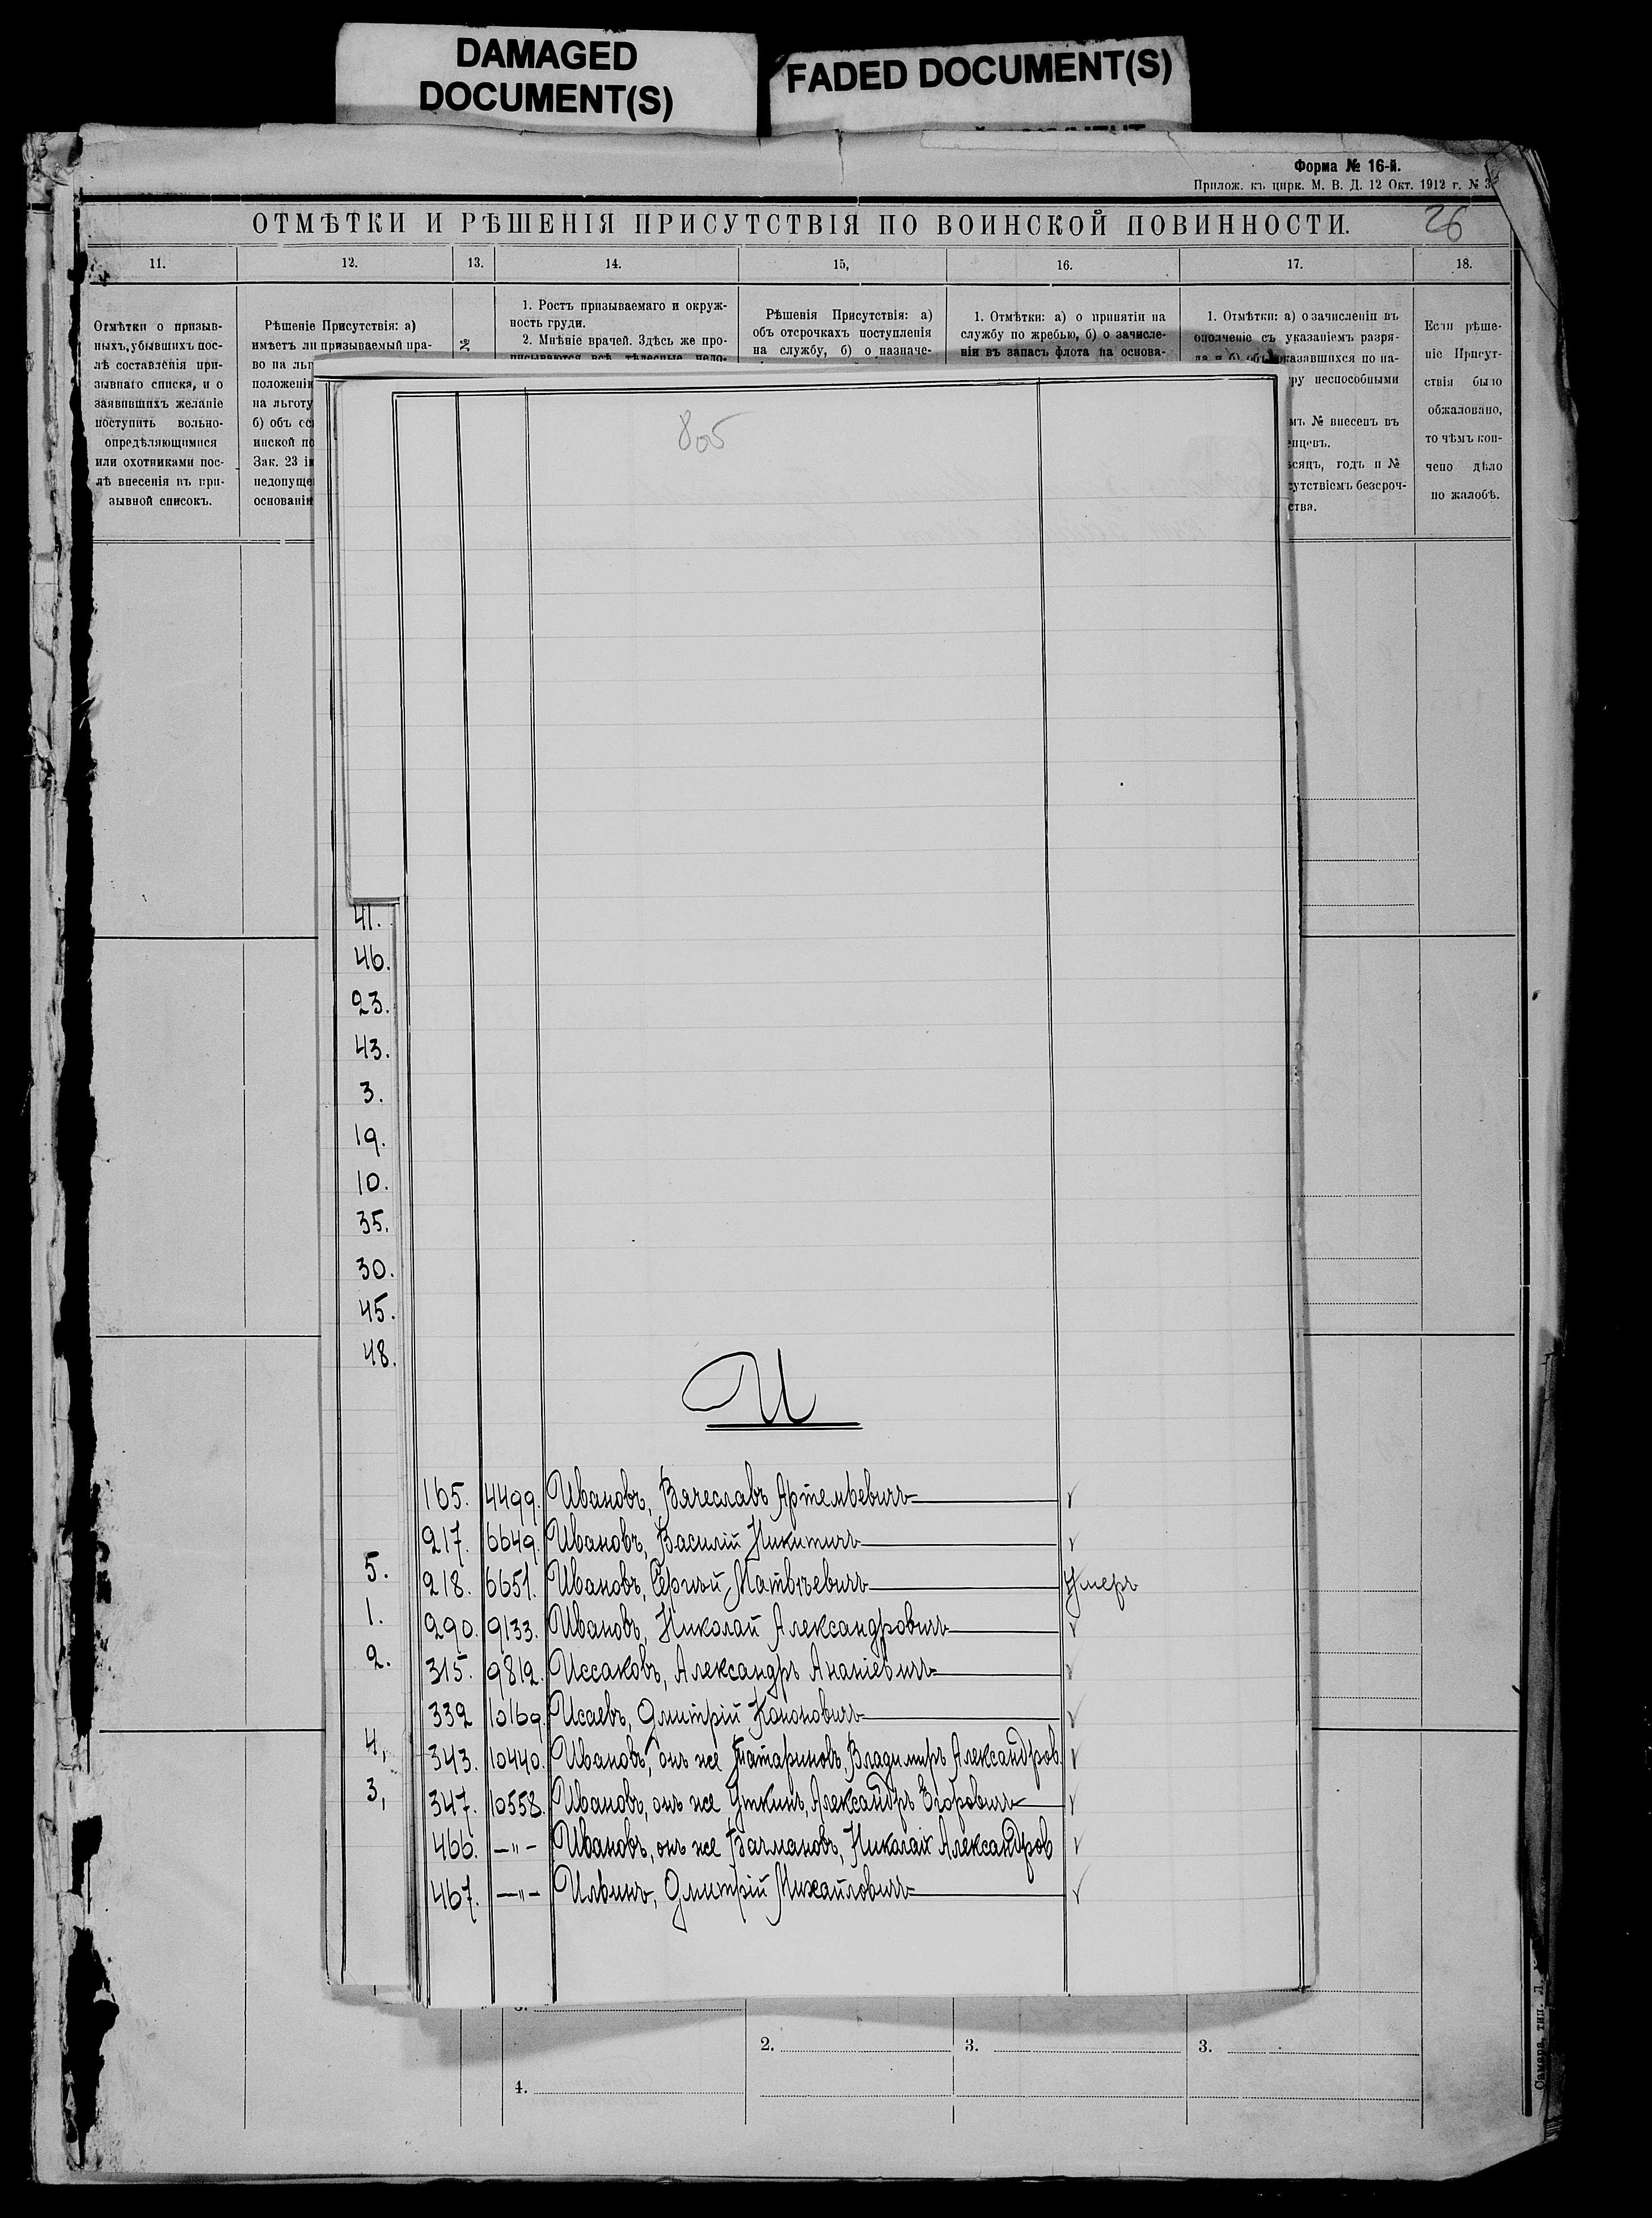 DAMAGED
DOCUMENT(S)
FADED DOCUMENT(S)
Форма № 16-й.
Прилож. къ цирк. М. В. Д. 12 Окт. 1912 г. № 3
ОТМѢТКИ И РѢШЕНІЯ ПРИСУТСТВІЯ ПО ВОИНСКОЙ ПОВИННОСТИ.
26
11. 12. 13. 14. 15, 16. 17. 18.
Отмѣтки о призыв-
ныхъ, убывшихъ пос-
лѣ составленія при-
зывнаго списка, и о
заявившихъ желаніе
поступить вольно-
опредѣляющимися
или охотниками пос-
лѣ внесенія въ при-
зывной списокъ.
Рѣшеніе Присутствія: а)
имѣетъ ли призываемый пра-
во на льг
положені
на льготу
б) объ
инской по
Зак. 23
недопуще
основані
№
1. Ростъ призываемаго и окруж-
ность груди.
2. Мнѣніе врачей. Здѣсь же про-
писываются всѣ тѣлесные недо-
Рѣшенія Присутствія: а)
объ отсрочкахъ поступленія
на службу, б) о назначе-
1. Отмѣтки: а) о принятіи на
службу по жребью, б) о зачисле-
ніи въ запасъ флота на основа-
1. Отмѣтки: а) о зачисленіи въ
ополченіе съ указаніемъ разря-
да и б) объ оказавшихся по на-
ру неспособными
мъ № внесенъ въ
енцевъ.
сяцъ, годъ и №
сутствіемъ безсроч-
ства.
Если рѣше-
ніе Присут-
ствія было
обжаловано,
то чѣмъ кон-
чено дѣло
по жалобѣ.
805
41.
46.
23.
43.
3.
19.
10.
35.
30.
45.
48.
И
165. 4499. Ивановъ, Вячеславъ Артемьевичъ
217. 6649. Ивановъ, Василій Никитичъ
5.
218. 6651. Ивановъ, Сергѣй Матвѣевичъ Умеръ
1.
290. 9133. Ивановъ, Николай Александровичъ
2.
315. 9812. Иссаковъ, Александръ Ананіевичъ
339 10169. Исаевъ, Дмитрій Кононовичъ
4,
343. 10440. Ивановъ, онъ же Татариновъ, Владимиръ Александров.
3,
347. 10558. Ивановъ, онъ же Уткинъ, Александръ Егоровичъ
466. —"— Ивановъ, онъ же Бачмановъ, Николай Александров
467. —"— Ильинъ, Дмитрій Михайловичъ
2. 3. 3.
4.
Самара, тип. Л.